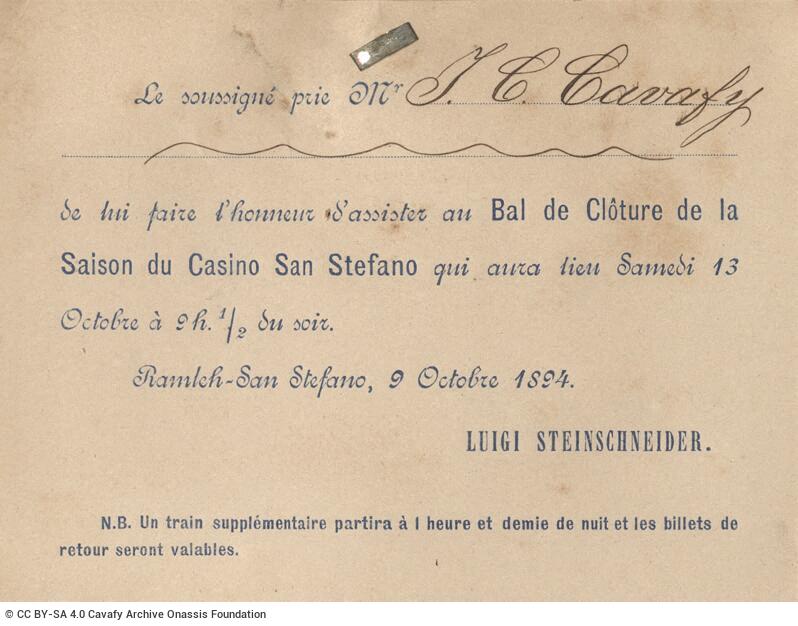 Le soussigné prie Mr J. C. Cavafy
de lui faire l'honneur d'assister au Bal de Clôture de la
Saison du Casino San Stefano qui aura lieu Samedi 13
Octobre à 9 h. 1/2 du soir.
Ramleh-San Stefano, 9 Octobre 1894.
LUIGI STEINSCHNEIDER.
N.B. Un train supplémentaire partira à 1 heure et demie de nuit et les billets de
retour seront valables.
© CC BY-SA 4.0 Cavafy Archive Onassis Foundation